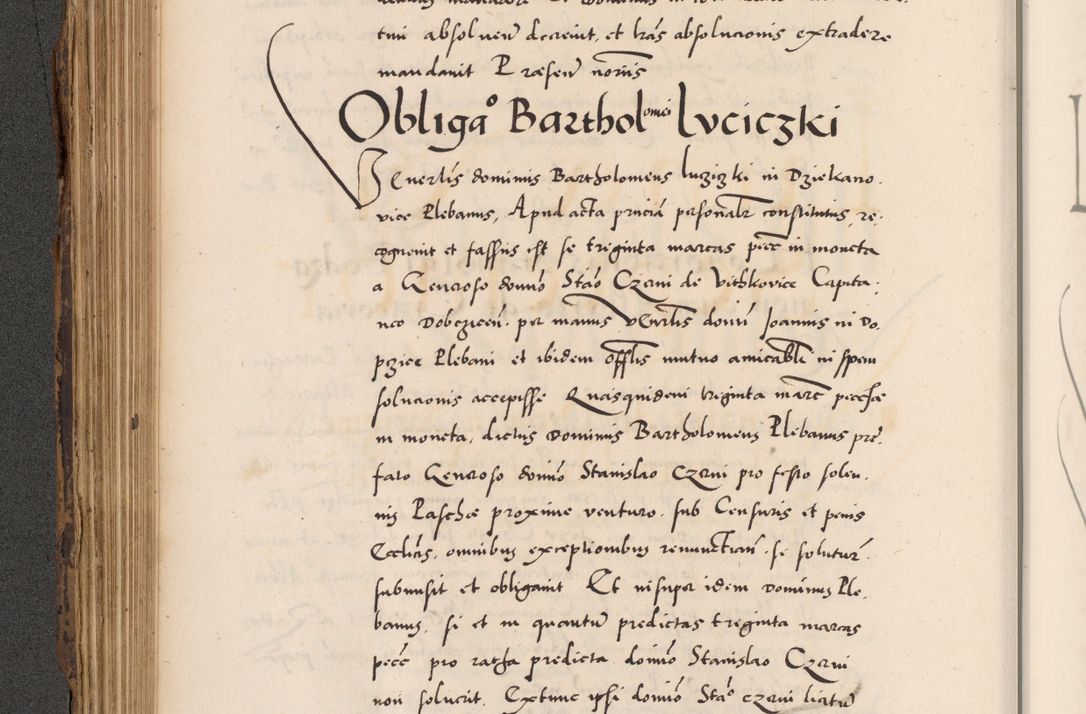 tuu absoluend decreuit, et lras absolucionis extradere
mandauit Presend notriis
Obligao Bartholomei Luciczki
Venerlis dominus Bartholomeus Luzizki in Dziekano.
vice Plebanus, Apud acta pntia personalr constitutus, re.
cognouit et fassus est se triginta marcas pecc in moneta
a Generoso domio Stao Czerni de Vithkovice Capita.
neo Dobcziceñ. per manus Venrlis domi Joannis in Do.
pczice Plebani et ibidem offlis mutuo amicabli in spem
solucionis accepisse Quasquidem triginta marc pecchae
in moneta, dictus Dominus Bartholomeus Plebanus pre.
fato Generoso domio Stanislao Czerni pro festo solen.
nis Paschae proxime venturo. sub Censuris et penis
Ecclicis, omnibus exceptionibus renunctian. se solutur.
submisit et obligauit Et insuper idem Dominus Ple.
banus, si et in quantu predictas triginta marcas
pecc pro ratha predicta domio Stanislao Czerni
non soluerit. Extunc ipsi domio Stao Czerni licitu